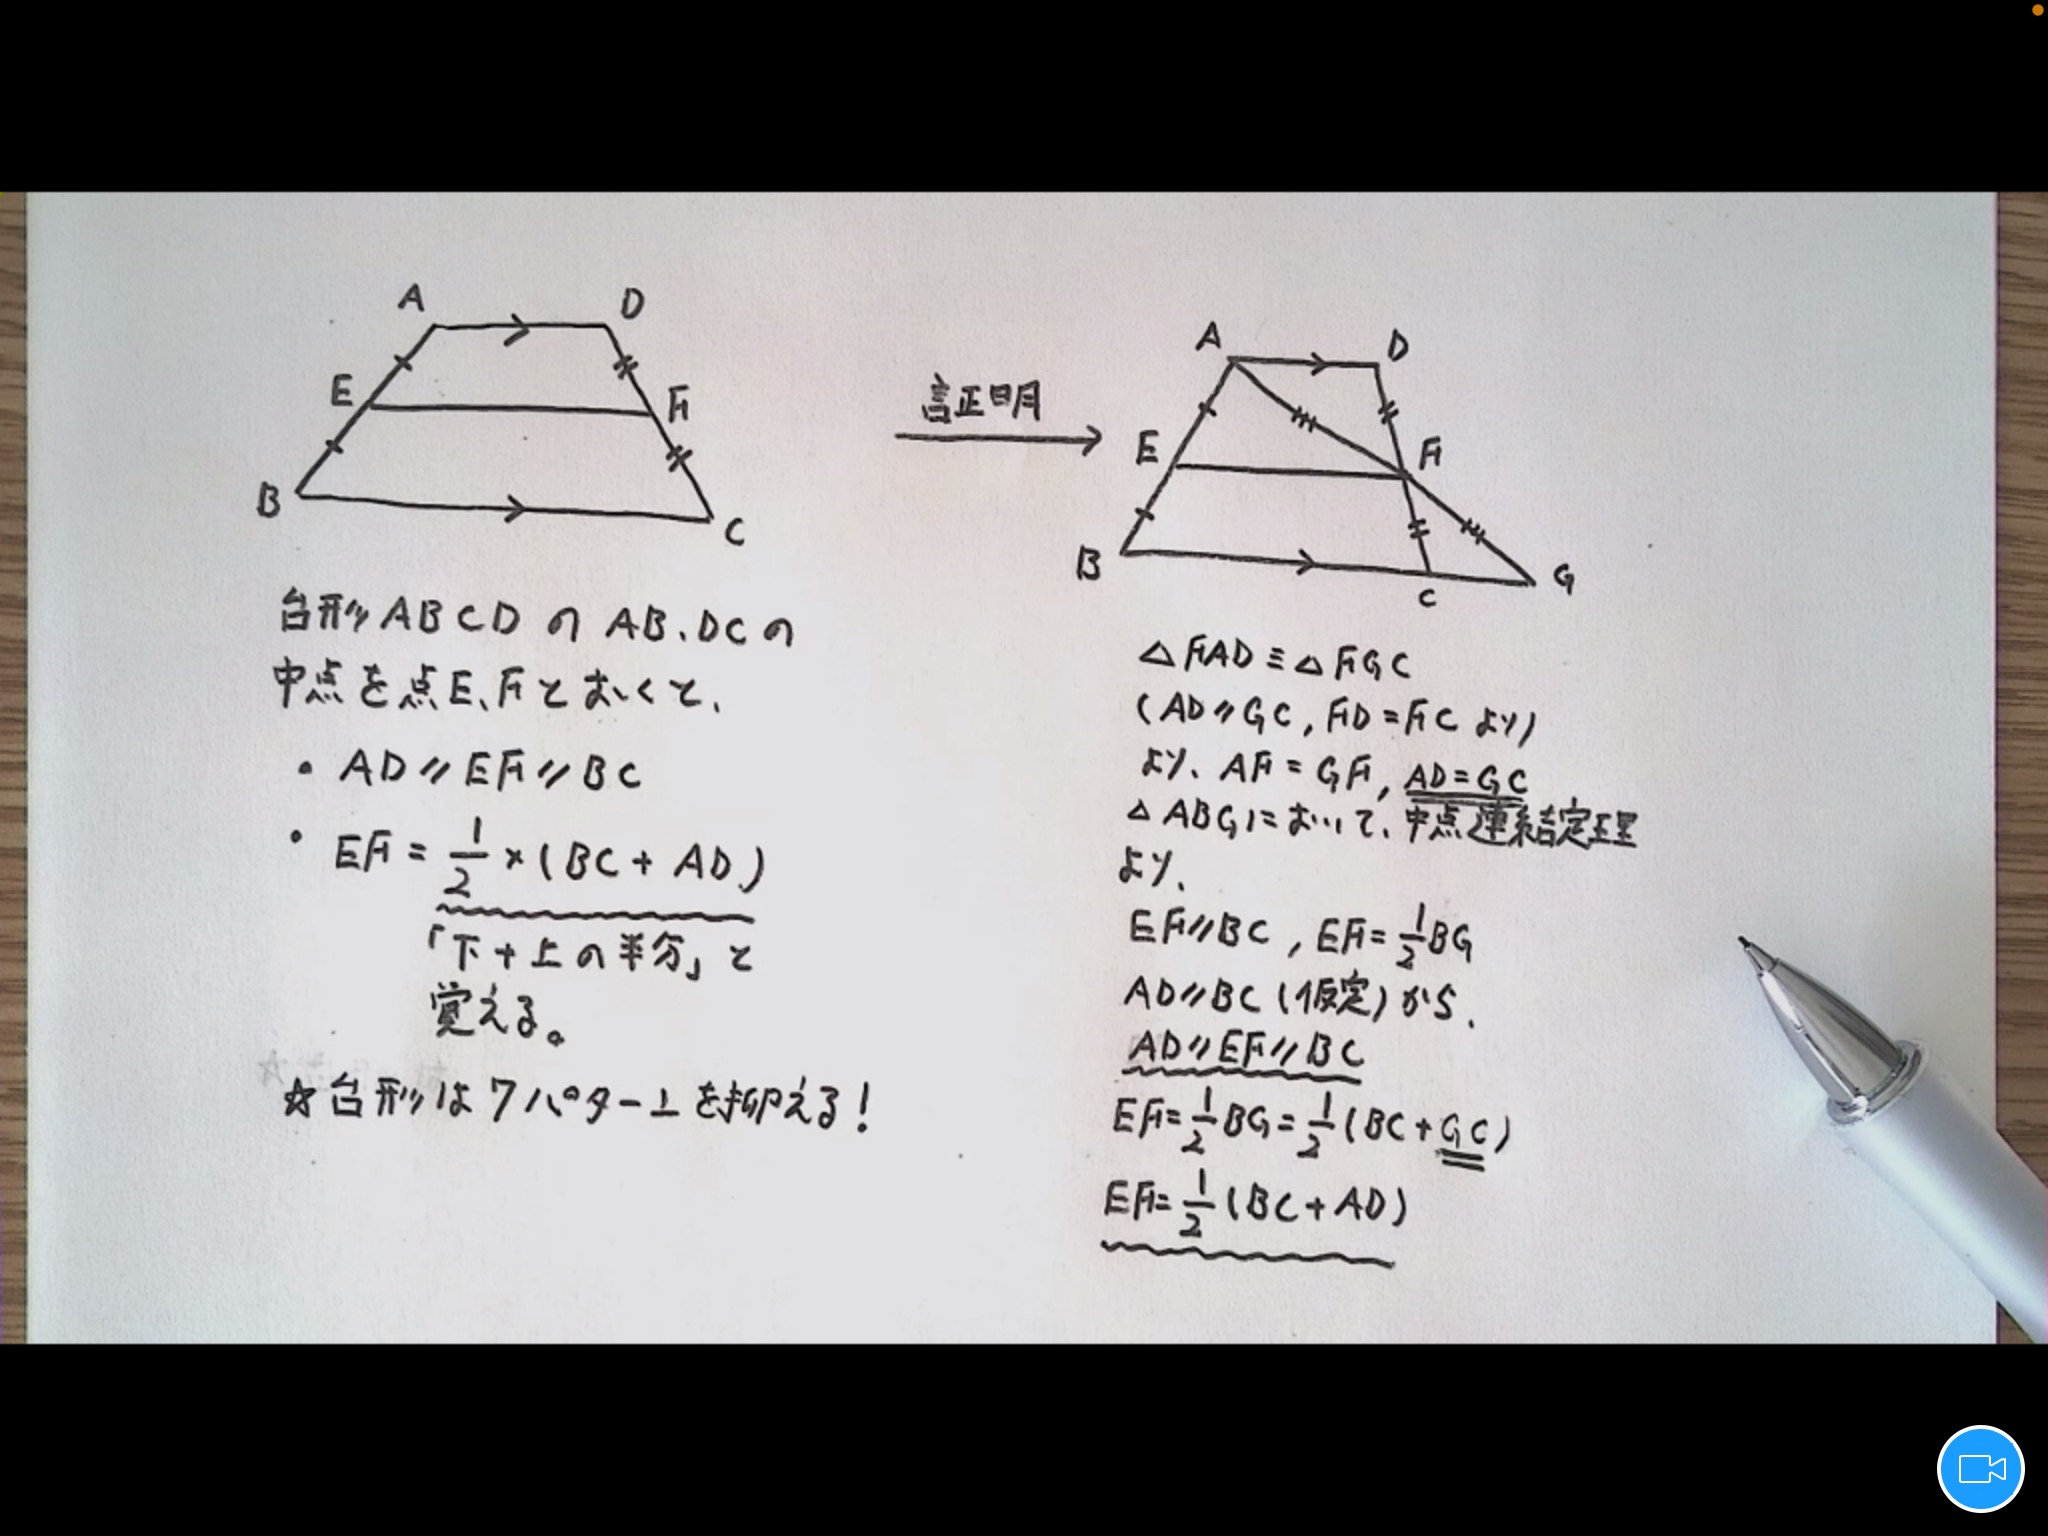 A D
E F
B C
台形ABCDのAB、DCの
中点を点E、Fとおくと、
・AD//EF//BC
・EF=1/2×(BC+AD)
「下+上の半分」と
覚える。
☆台形は7パターンを抑える!
証明
A D
E F
B C G
△FAD≡△FGC
(AD//GC, FD=FCより)
より、AF=GF, AD=GC
△ABGにおいて、中点連結定理
より、
EF//BC, EF=1/2BG
AD//BC(仮定)から、
AD//EF//BC
EF=1/2BG=1/2(BC+GC)
EF=1/2(BC+AD)